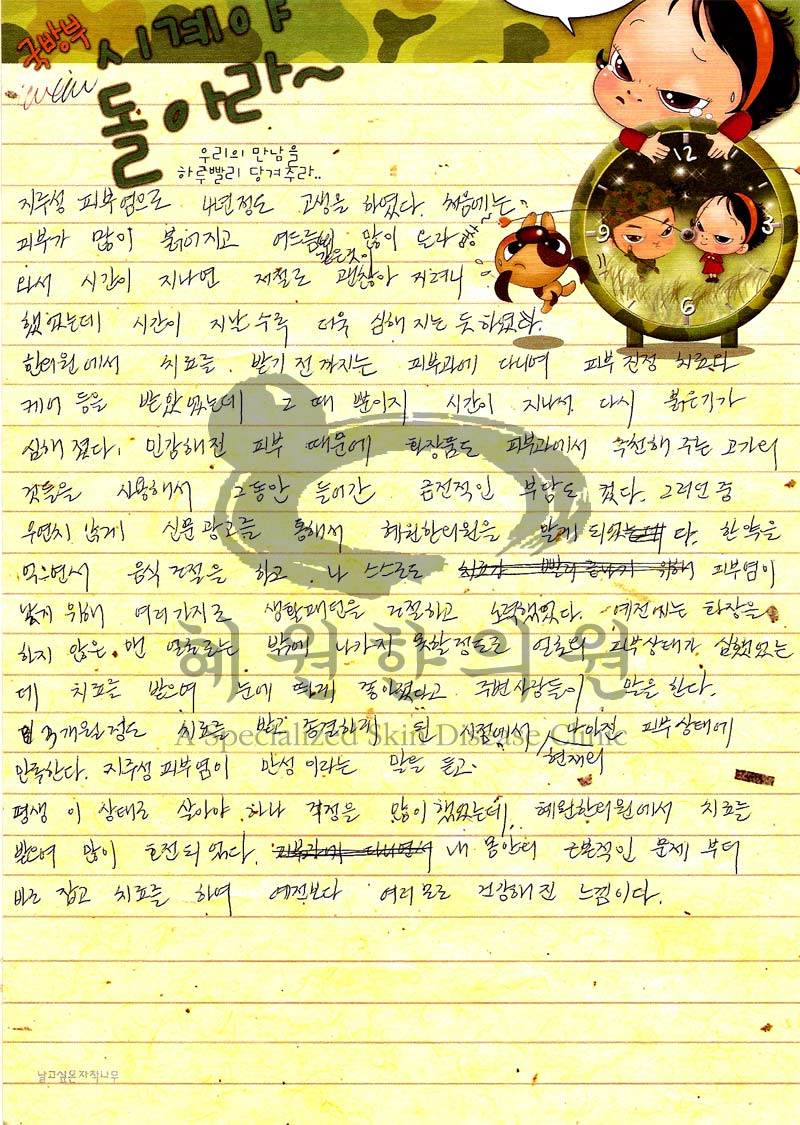 국방부
시계야
돌아라~
우리의 만남을
하루빨리 당겨주라..
12
3
6
9
지루성 피부염으로 4년정도 고생을 하였다. 처음에는
피부가 많이 붉어지고 여드름같은것이 많이 올라
와서 시간이 지나면 저절로 괜찮아 지려니
했었는데 시간이 지날수록 더욱 심해 지는 듯 하였다.
한의원에서 치료를 받기 전 까지는 피부과에 다니며 피부 진정 치료와
케어 등을 받았었는데 그 때 뿐이지 시간이 지나서 다시 붉은기가
심해 졌다. 민감해진 피부 때문에 화장품도 피부과에서 추천해 주는 고가의
것들을 사용해서 그동안 들어간 금전적인 부담도 컸다. 그러던 중
우연치 않게 신문광고를 통해서 혜원한의원을 알게 되었다. 한약을
먹으면서 음식 조절을 하고 나 스스로도 치료가 빨리 끝나기 위해 피부염이
낫기 위해 여러가지로 생활패턴을 조절하고 노력했었다. 예전에는 화장을
하지 않은 맨 얼굴로는 밖에 나가지 못할정도로 얼굴의 피부상태가 심했었는
데 치료를 받으며 눈에 띄게 좋아졌다고 주변사람들이 말을 한다.
3개월정도 치료를 받고 종결한지 된 시점에서 현재의 나아진 피부상태에
만족한다. 지루성피부염이 만성이라는 말을 듣고
평생 이 상태로 살아야 하나 걱정을 많이 했었는데, 혜원한의원에서 치료를
받으며 많이 호전되었다. 피부과에 다니면서 내 몸안의 근본적인 문제 부터
바로 잡고 치료를 하여 예전보다 여러모로 건강해진 느낌이다.
혜원한의원
A Specialized Skin Disease Clinic
날고싶은자작나무